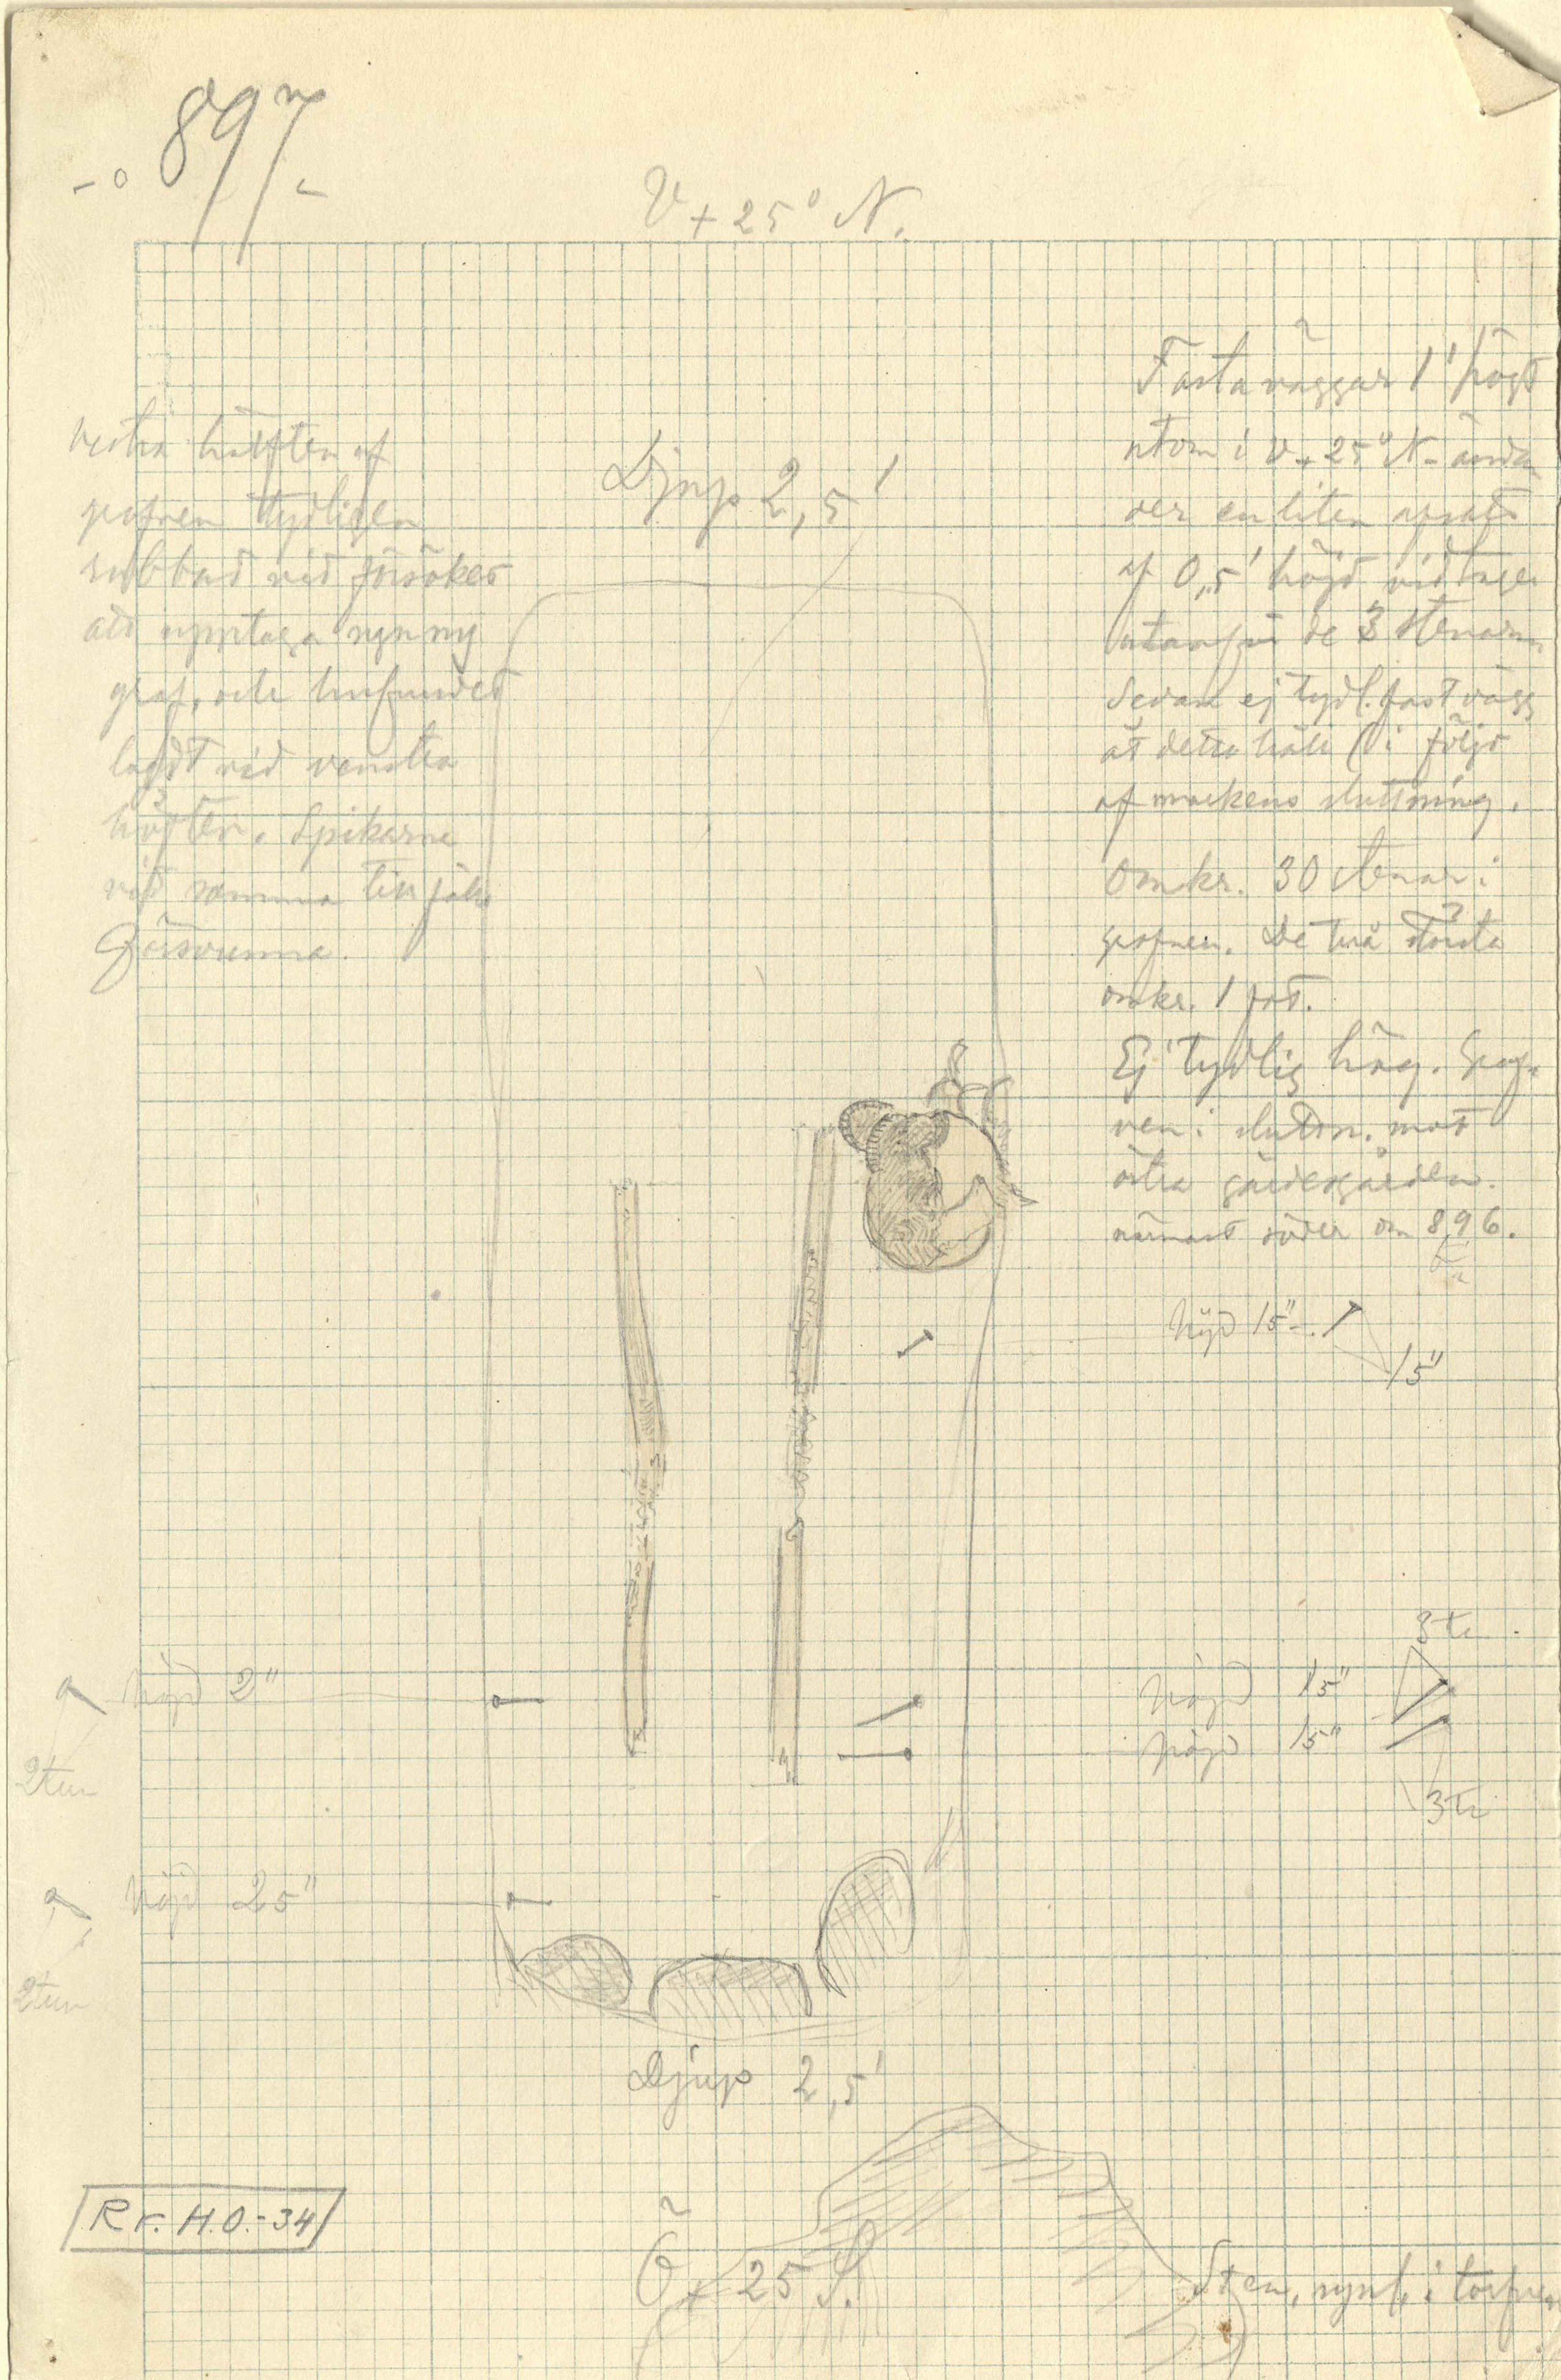 897
V + 25° N.
Vestra hälften af
grafven tydligen
rubbad vid försöket
att upptaga
graf, och hufvudet
lagdt vid venstra
höften. Spikarne
vid samma tillfälle
försvunna.
Djup 2,5'
Fasta väggar 1' högt
utom i V + 25° N-ändan
der en liten afsats
af 0,5' höjd vidtager
utanför de 3 stenarne
Sedan ej tydl. fast vägg
åt detta håll (i följd
af markens sluttning.
Omkr. 30 stenar i
grafven. De två största
omkr. 1 fot.
Ej tydlig hög. Graf-
ven i sluttn. mot
östra gärdesgården.
närmast söder om 896.
Höjd 15"
15"
3 tu
Höjd 2"
Höjd 15"
2 tum
Höjd 15"
3 tu
Höjd 25"
2 tum
Djup 2,5'
Rr. H.O.-34
Ö + 25 S.
Sten, synl. i torfven